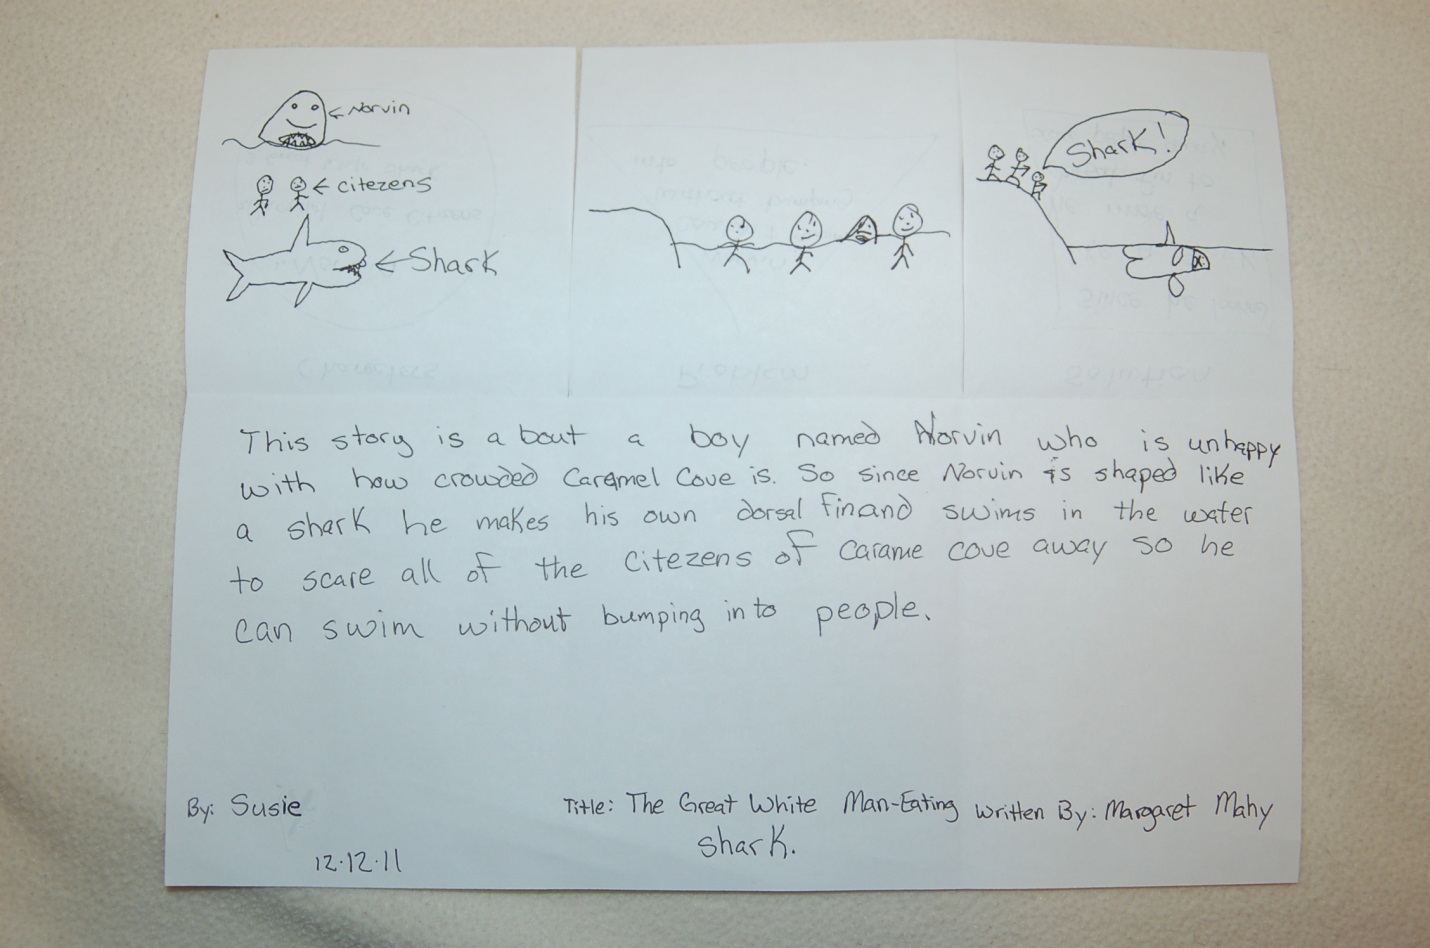 Norvin
citezens
Shark
Shark!
Characters
Problem
Solution
This story is a bout a boy named Norvin who is unhappy
with how crowded Caramel Cove is. So since Norvin is shaped like
a shark he makes his own dorsal finand swims in the water
to scare all of the citezens of Carame cove away so he
can swim without bumping into people.
By: Susie
Title: The Great White Man-Eating
Shark.
Written By: Margaret Mahy
12.12.11